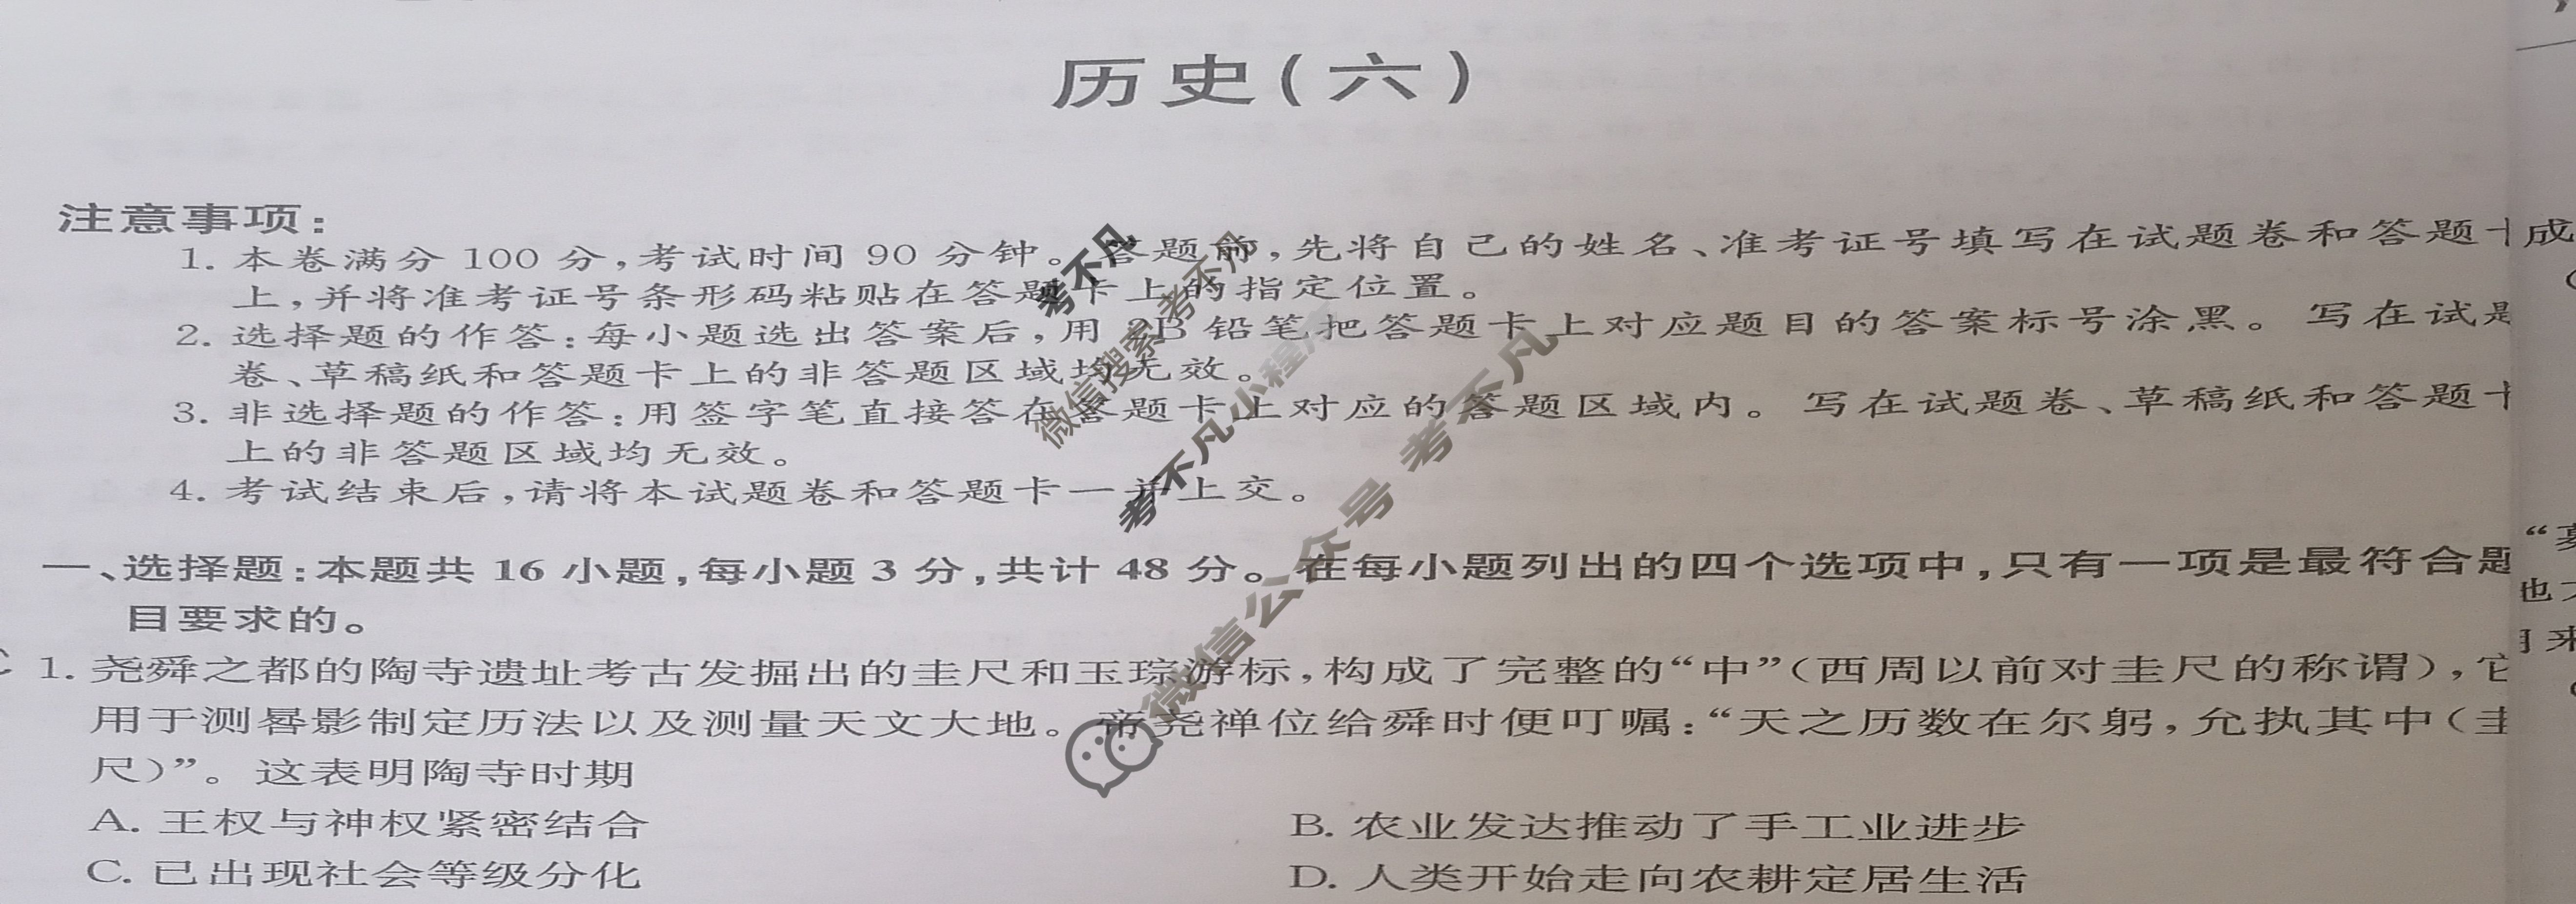 历史(六)
注意事项:
1. 本卷满分 100 分,考试时间 90 分钟。答题前,先将自己的姓名、准考证号填写在试题卷和答题卡
上,并将准考证号条形码粘贴在答题卡上的指定位置。
2. 选择题的作答:每小题选出答案后,用 2B 铅笔把答题卡上对应题目的答案标号涂黑。写在试题
卷、草稿纸和答题卡上的非答题区域均无效。
3. 非选择题的作答:用签字笔直接答在答题卡上对应的答题区域内。写在试题卷、草稿纸和答题卡
上的非答题区域均无效。
4. 考试结束后,请将本试题卷和答题卡一并上交。
一、选择题:本题共 16 小题,每小题 3 分,共计 48 分。在每小题列出的四个选项中,只有一项是最符合题
目要求的。
1. 尧舜之都的陶寺遗址考古发掘出的圭尺和玉琮游标,构成了完整的“中”(西周以前对圭尺的称谓),它
用于测晷影制定历法以及测量天文大地。帝尧禅位给舜时便叮嘱:“天之历数在尔躬,允执其中(圭
尺)”。这表明陶寺时期
A. 王权与神权紧密结合
B. 农业发达推动了手工业进步
C. 已出现社会等级分化
D. 人类开始走向农耕定居生活
考不凡
微信搜索 考不凡
考不凡小程序
微信公众号 考不凡
成
也
来